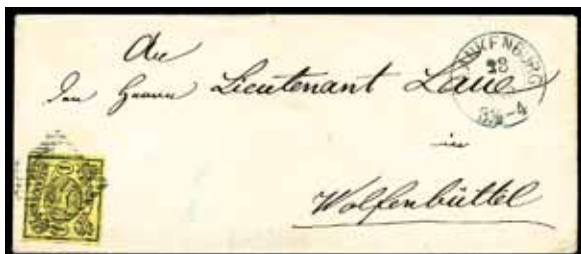 An
den Herrn Lieutenant Laue
in
Wolfenbüttel
ANKENBURG
23
3½-4